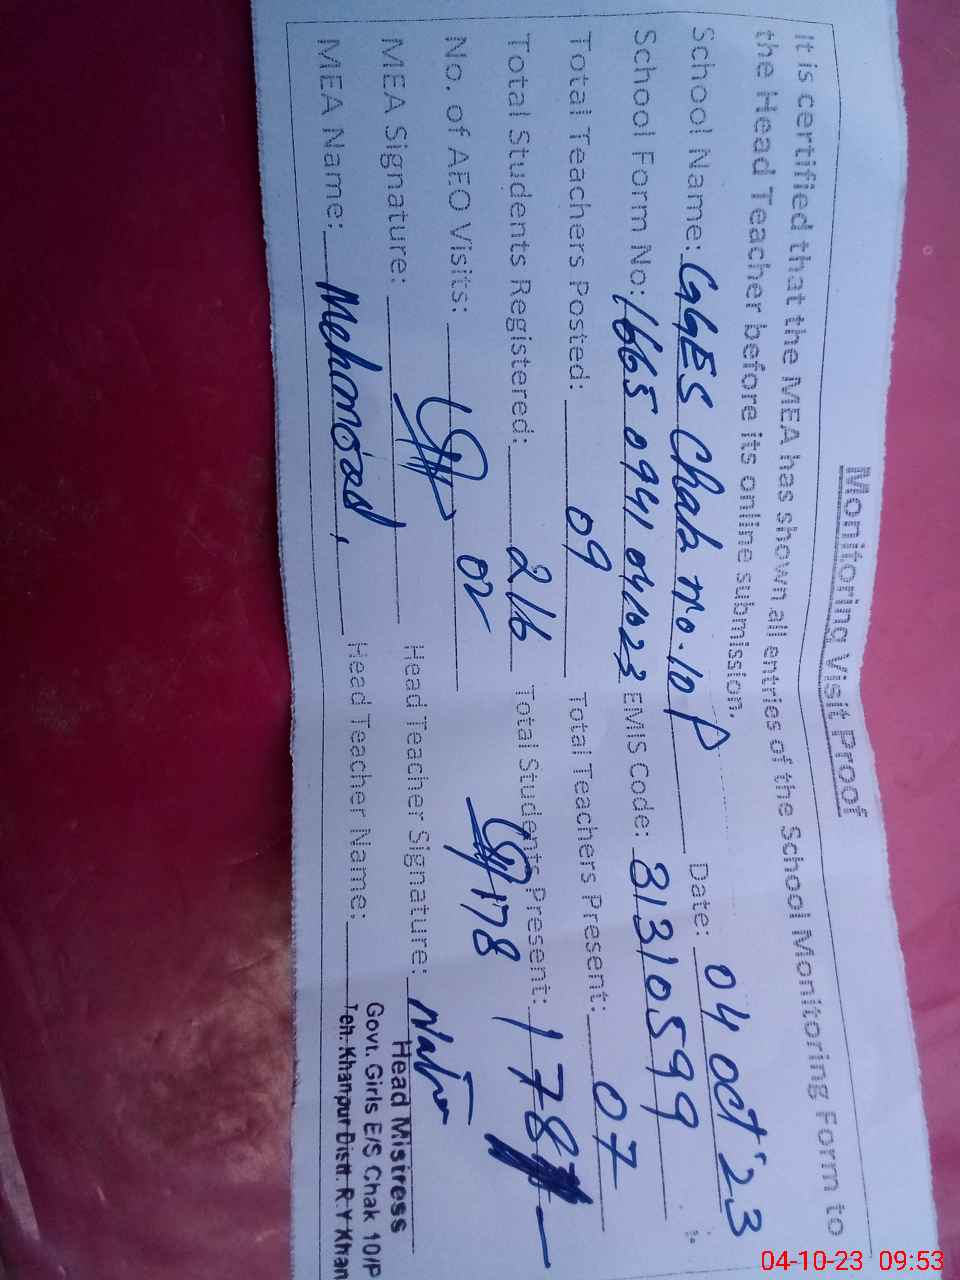 Monitoring Visit Proof
It is certified that the MEA has shown all entries of the School Monitoring Form to
the Head Teacher before its online submission.
School Name: GGES Chak no. 10 P Date: 04 oct '23
School Form No: 1665 0941 041023 EMIS Code: 31310599
Total Teachers Posted: 09 Total Teachers Present: 07
Total Students Registered: 216 Total Students Present: 178
No. of AEO Visits: 02 178
MEA Signature: Head Teacher Signature:
MEA Name: Head Teacher Name:
Head Mistress
Govt. Girls E/S Chak 10/P
Teh. Khanpur Distt. R.Y Khan
04-10-23 09:53